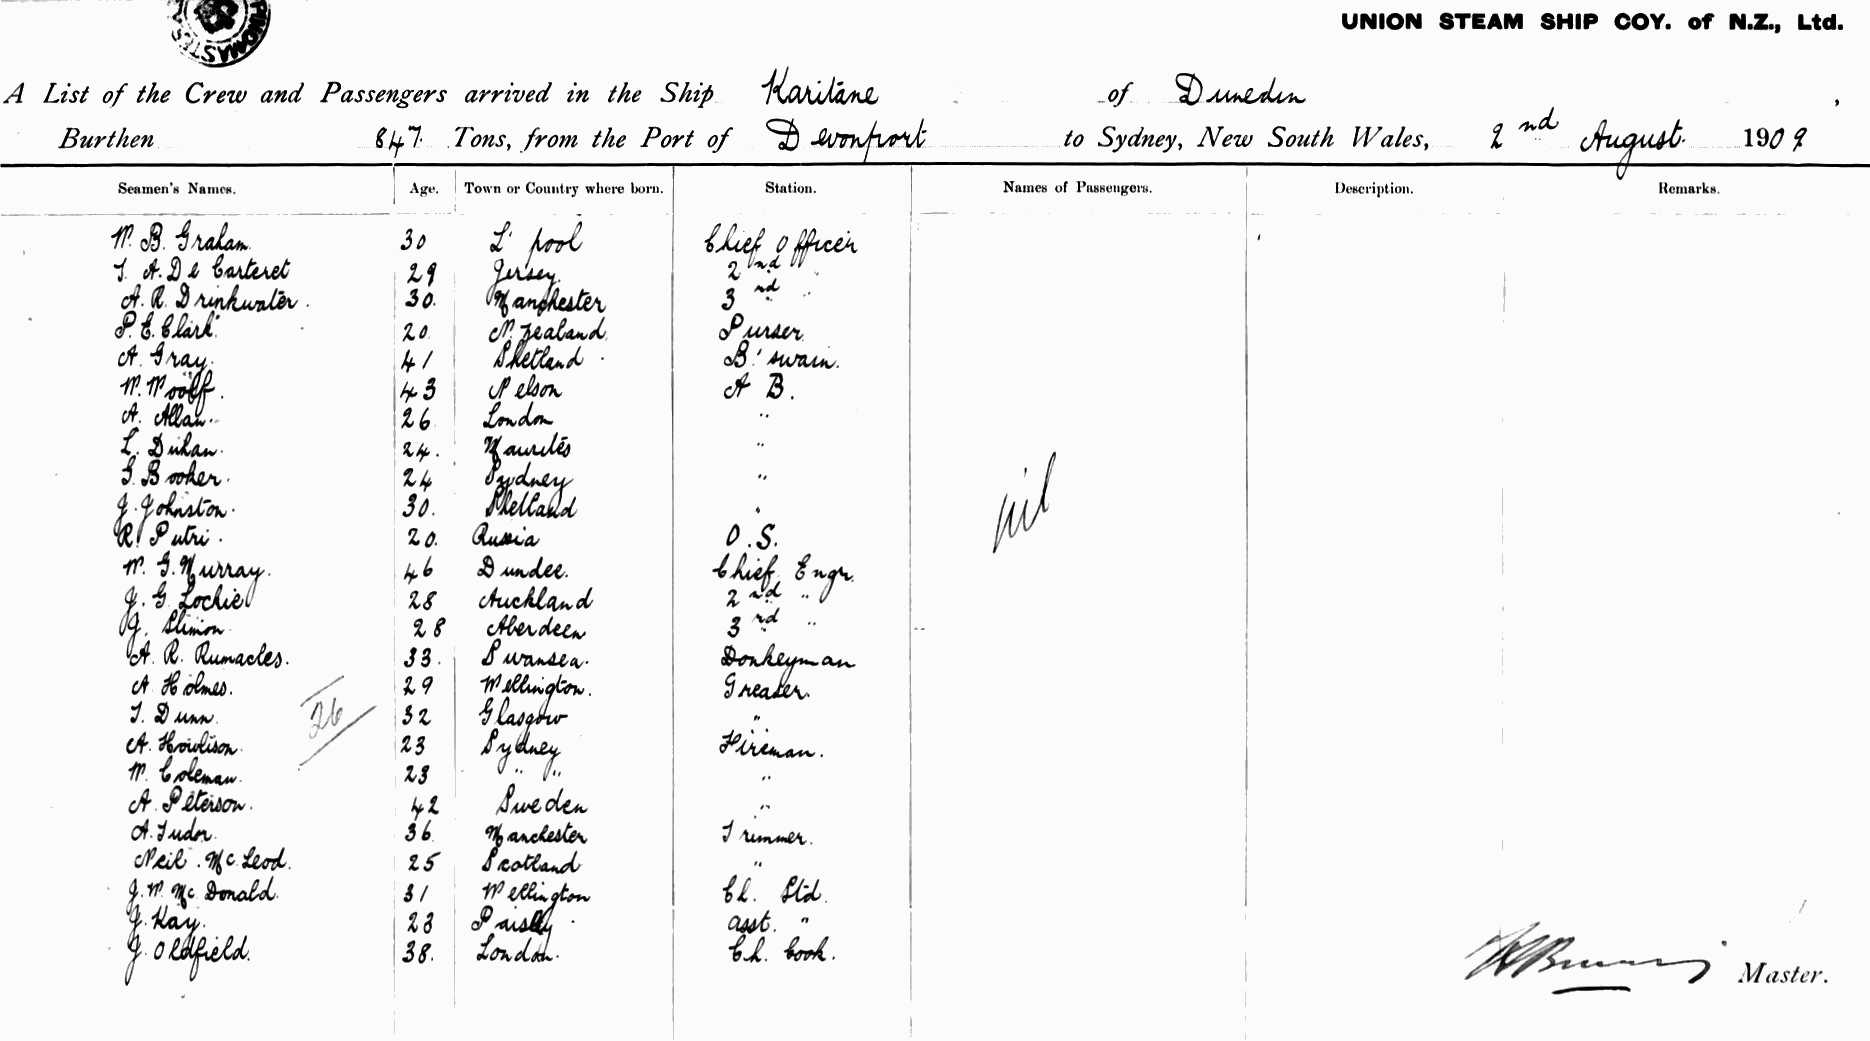 UNION STEAM SHIP COY. of N.Z., Ltd.
A List of the Crew and Passengers arrived in the Ship Karitane of Dunedin,
Burthen 847 Tons, from the Port of Devonport to Sydney, New South Wales, 2nd August. 1909
Seamen's Names. Age. Town or Country where born. Station. Names of Passengers. Description. Remarks.
W. B. Graham. 30 L'pool Chief Officer
A. De Carteret 29 Jersey. 2nd "
A. R. Drinkwater. 30. Manchester 3rd " "
P. E. Clark. 20. N. Zealand. Purser.
A. Gray. 41 Shetland B'swain.
W. Woolf. 43 Nelson A B.
A. Allan. 26. London "
L. Duhan. 24. "
G. Booker. 24 Sydney "
J. Johnston. 30. Shetland "
R. Putri. 20. Russia O. S.
nil
W. G. Murray. 46 Dundee. Chief Engr.
J. G. Lochie 28 Auckland 2nd "
J. Slimon. 28 Aberdeen 3rd "
A. R. Rumacles. 33. Swansea. Donkeyman
A. Holmes. 29 Wellington. Greaser.
T. Dunn. 32 Glasgow "
26
A. Howlison. 23 Sydney Fireman.
W. Coleman. 23 " " "
A. Peterson. 42 Sweden "
A. Tudor. 36. Manchester Trimmer.
Neil. McLeod. 25 Scotland "
J. W. McDonald. 31 Wellington Ch. Std.
J. Kay. 23 Paisley asst. "
J. Oldfield. 38. London. Ch. Cook.
Master.